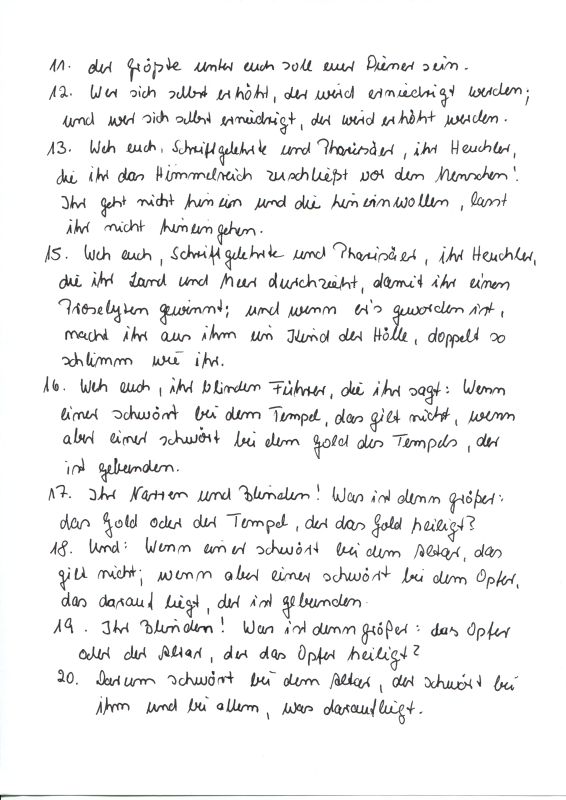 11. der Größte unter euch soll euer Diener sein.
12. Wer sich selbst erhöht, der wird erniedrigt werden;
und wer sich selbst erniedrigt, der wird erhöht werden.
13. Weh euch, Schriftgelehrte und Pharisäer, ihr Heuchler,
die ihr das Himmelreich zuschließt vor den Menschen!
Ihr geht nicht hinein und die hineinwollen, lasst
ihr nicht hineingehen.
15. Weh euch, Schriftgelehrte und Pharisäer, ihr Heuchler,
die ihr Land und Meer durchzieht, damit ihr einen
Proselyten gewinnt; und wenn er's geworden ist,
macht ihr aus ihm ein Kind der Hölle, doppelt so
schlimm wie ihr.
16. Weh euch, ihr blinden Führer, die ihr sagt: Wenn
einer schwört bei dem Tempel, das gilt nicht, wenn
aber einer schwört bei dem Gold des Tempels, der
ist gebunden.
17. Ihr Narren und Blinden! Was ist denn größer:
das Gold oder der Tempel, der das Gold heiligt?
18. Und: Wenn einer schwört bei dem Altar, das
gilt nicht; wenn aber einer schwört bei dem Opfer,
das darauf liegt, der ist gebunden.
19. Ihr Blinden! Was ist denn größer: das Opfer
oder der Altar, der das Opfer heiligt?
20. Darum schwört bei dem Altar, der schwört bei
ihm und bei allem, was daraufliegt.